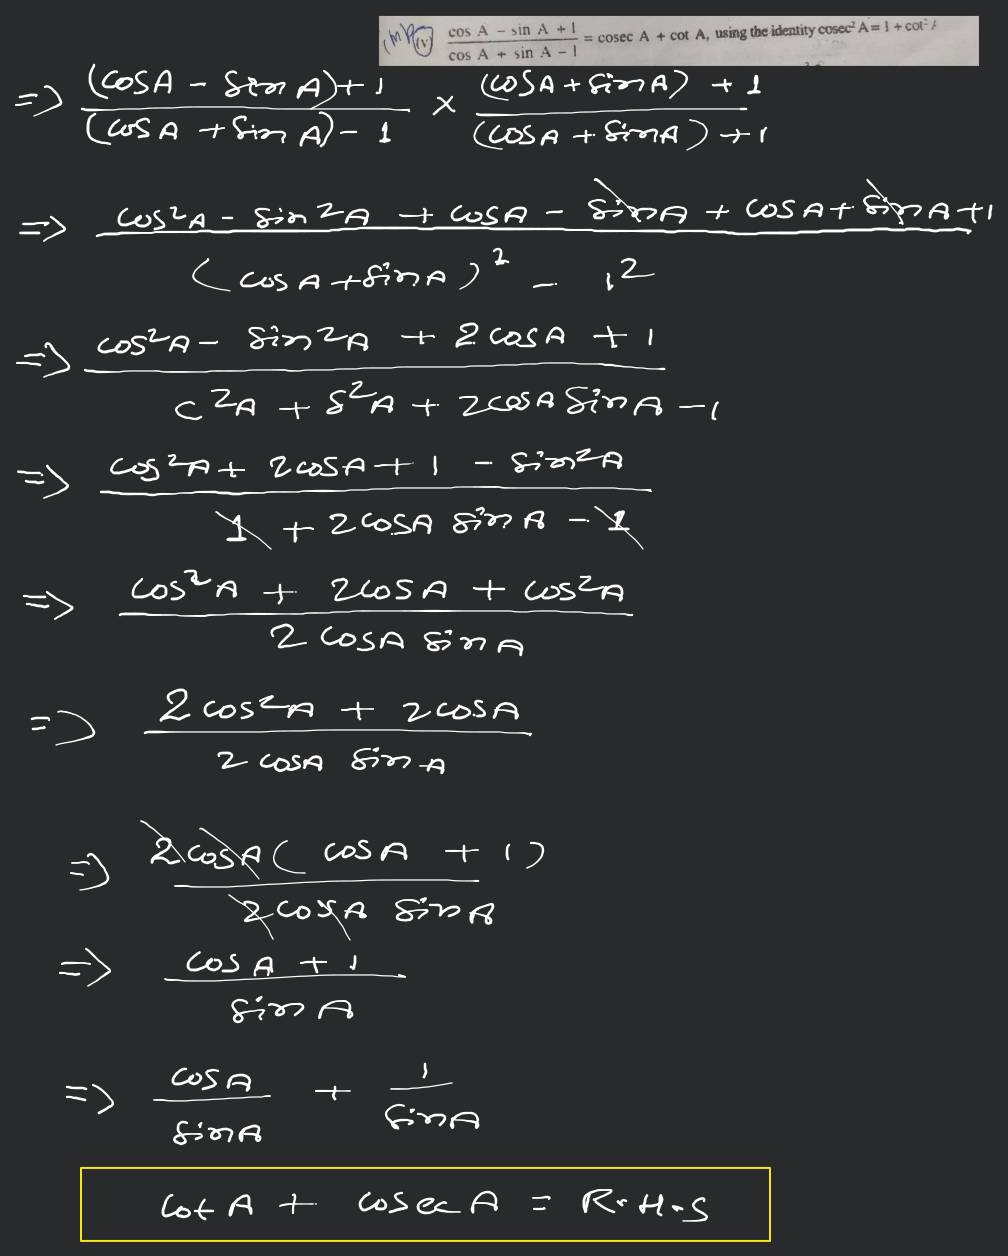 (Imp) (v) cos A − sin A + 1 / cos A + sin A − 1 = cosec A + cot A, using the identity cosec² A = 1 + cot² A
=> (cosA − sin A)+1 / (cosA + sin A)−1 × (cosA + sinA) + 1 / (cosA + sinA) + 1
=> cos²A − sin²A + cosA − sinA + cosA + sinA + 1 / (cosA + sinA)² − 1²
=> cos²A − sin²A + 2cosA + 1 / c²A + s²A + 2cosA sinA − 1
=> cos²A + 2cosA + 1 − sin²A / 1 + 2cosA sinA − 1
=> cos²A + 2cosA + cos²A / 2 cosA sinA
=> 2cos²A + 2cosA / 2 cosA sinA
=> 2cosA( cosA + 1) / 2cosA sinA
=> cosA + 1 / sinA
=> cosA / sinA + 1 / sinA
cotA + cosecA = R.H.S